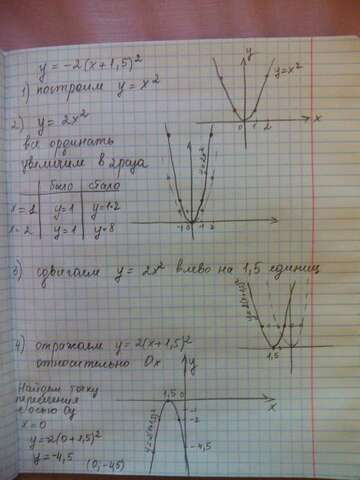 y = -2(x+1,5)²
1) построим y = x²
y
y=x²
0 1 2 x
2) y = 2x²
все ординаты
увеличим в 2 раза
было стало
x=1 y=1 y=1·2
x=2 y=1 y=8
y=2x²
-1 0 1 2
3) сдвигаем y = 2x² влево на 1,5 единиц
y=2(x+1,5)²
1,5
4) отражаем y = 2(x+1,5)²
относительно Ox
y
1,5 0 x
-1
-2
-4,5
Найдем точку
пересечения
с осью Oy
x=0
y=-2(0+1,5)²
y=-4,5
(0;-4,5)